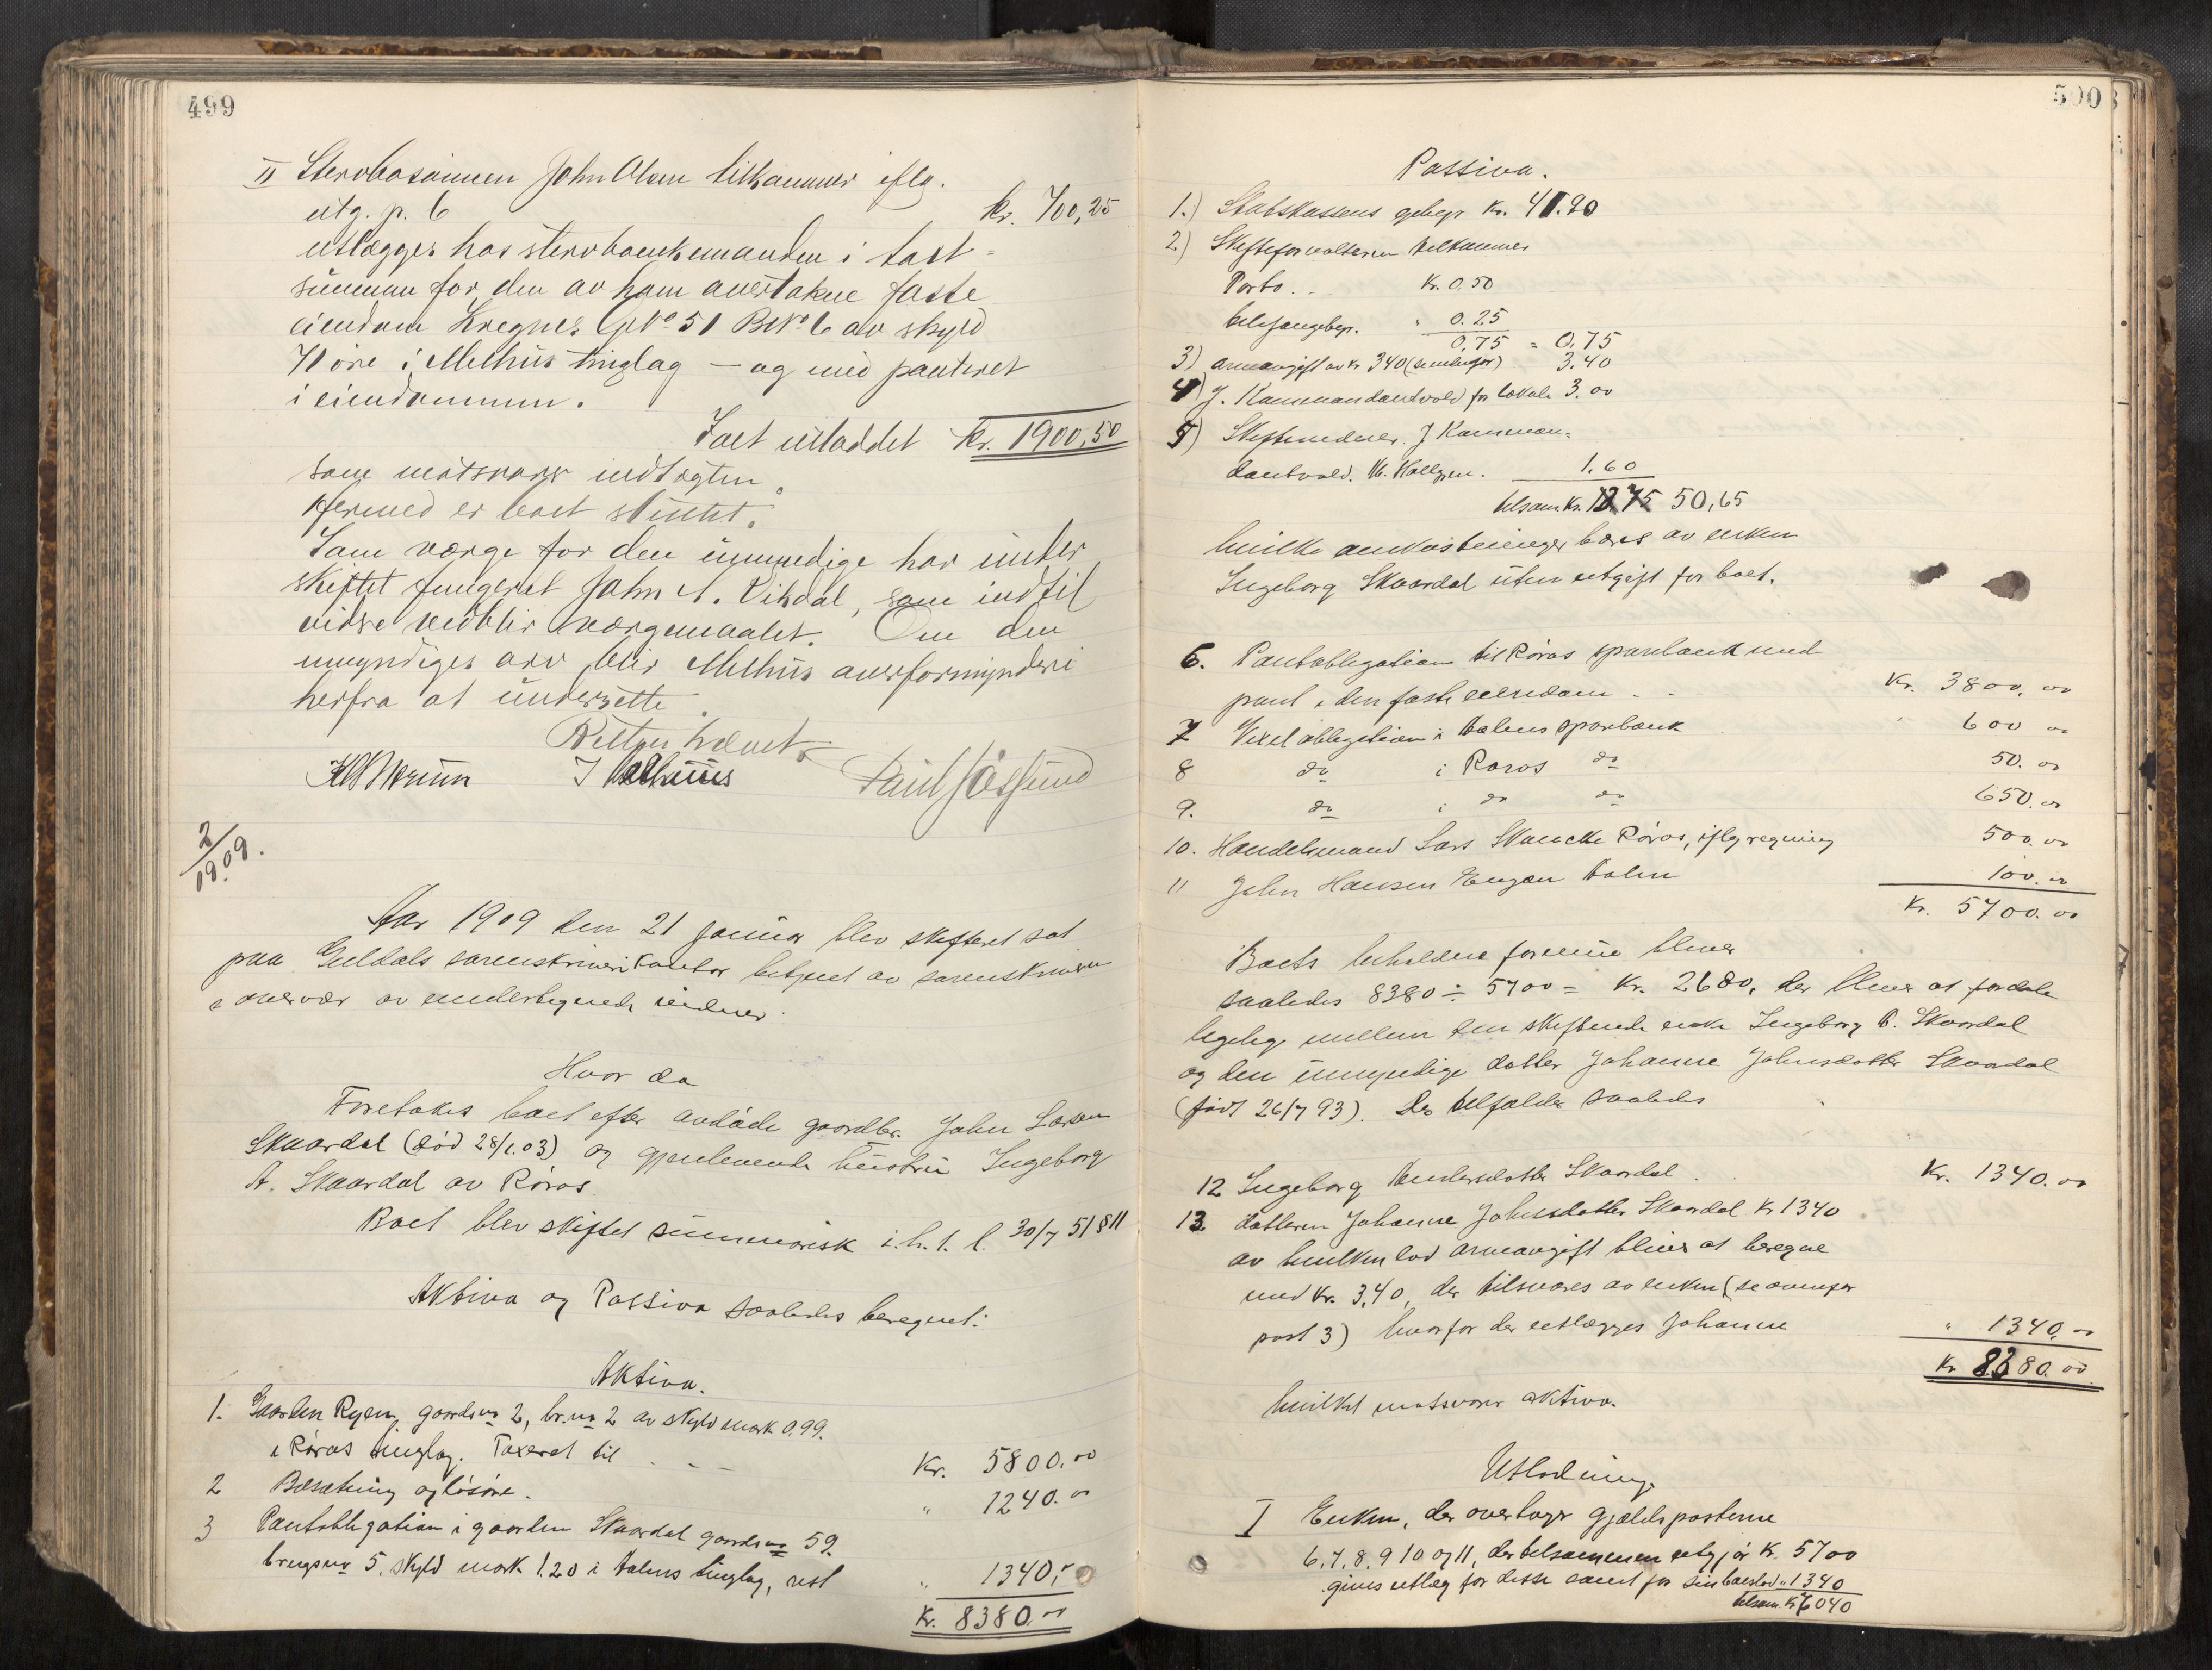 499
II Stervbosønnen John Olsen tilkommer iflg.
utg. p. 6 kr. 700,25
utlægges hos stervboenkemanden i takst-
summen for den av ham overtakne faste
eiendom Kregnes G№ 51 B№ 6 av skyld
71 øre i Melhus tinglag – og med panteret
i eiendommen.
Ialt utloddet kr. 1900,50
som motsvarer indtægten.
Hermed er boet sluttet.
Som værge for den umyndige har under
skiftet fungeret John A. Vikdal, som indtil
videre vedblir værgemaalet. Om den
umyndiges arv blir Melhus overformynderi
herfra at underrette.
Retten hævet.
2/1909.
Aar 1909 den 21 januar blev skifteret sat
paa Guldals sorenskriverikontor betjent av sorenskriveren
i overvær av undertegnede vidner.
Hvor da
Foretokes boet efter avdøde gaardbr. John Larsen
Skaardal (død 28/1.03) og gjenlevende hustru Ingeborg
A. Skaardal av Røros.
Boet blev skiftet summarisk i.h.t. l. 30/7 51 § 11
Aktiva og Passiva saaledes beregnet:
Aktiva.
1. Gaarden Ryen, gaardsno 2, br.no 2 av skyld mark 0.99.
i Røros tinglag. Taxeret til Kr. 5800.00
2 Besætning og løsøre. " 1240.00
3 Pantobligation i gaarden Skaardal gaardsno 59.
brugsno 5. skyld mark 1.20 i Aalens tinglag, rest " 1340,-
Kr. 8380.00
500
Passiva.
1.) Statskassens gebyr Kr. 41.90
2.) Skifteforvalteren tilkommer
Porto.. Kr. 0.50
telefongebyr. " 0.25
0,75 = 0.75
3) arveavgift av kr 340 (se nedenfor) 3.40
4) J. Kommandantvold for lokale 3.00
5) Skiftevidner. J Komman-
dantvold. 1.60
tilsam. Kr. 50,65
hvilke omkostninger bæres av enken
Ingeborg Skaardal uten utgift for boet.
6. Pantobligation til Røros sparebank med
pant i den faste eiendom - - Kr. 3800.00
7 Vexelobligation i Aalens sparebank " 600 00
8 do i Røros do 50.00
9. do i do do 650.00
10. Handelsmand Lars Skancke Røros, iflg regning 500.00
11 John Hansen Engan Aalen 100.00
Kr. 5700.00
Boets beholdne formue bliver
saaledes 8380 ÷ 5700 = Kr. 2680, der bliver at fordele
ligelig mellem den skiftende enke Ingeborg A. Skaardal
og den umyndige datter Johanne Johnsdatter Skaardal
(født 26/7 93). Der tilfalder saaledes
12 Ingeborg Andersdatter Skaardal. Kr. 1340.00
13. datteren Johanne Johnsdatter Skaardal Kr 1340
av hvilken lod arveavgift bliver at beregne
med Kr. 3,40, der tilsvares av enken (se ovenfor
post 3) hvorfor der utlægges Johanne " 1340,00
Kr 8380.00
hvilket motsvarer aktiva.
Utlodning.
I Enken, der overtager gjældsposterne
6. 7. 8. 9 10 og 11, der tilsammen utgjør Kr. 5700
gives utlæg for disse samt for sin boeslod " 1340
tilsam. Kr 7040